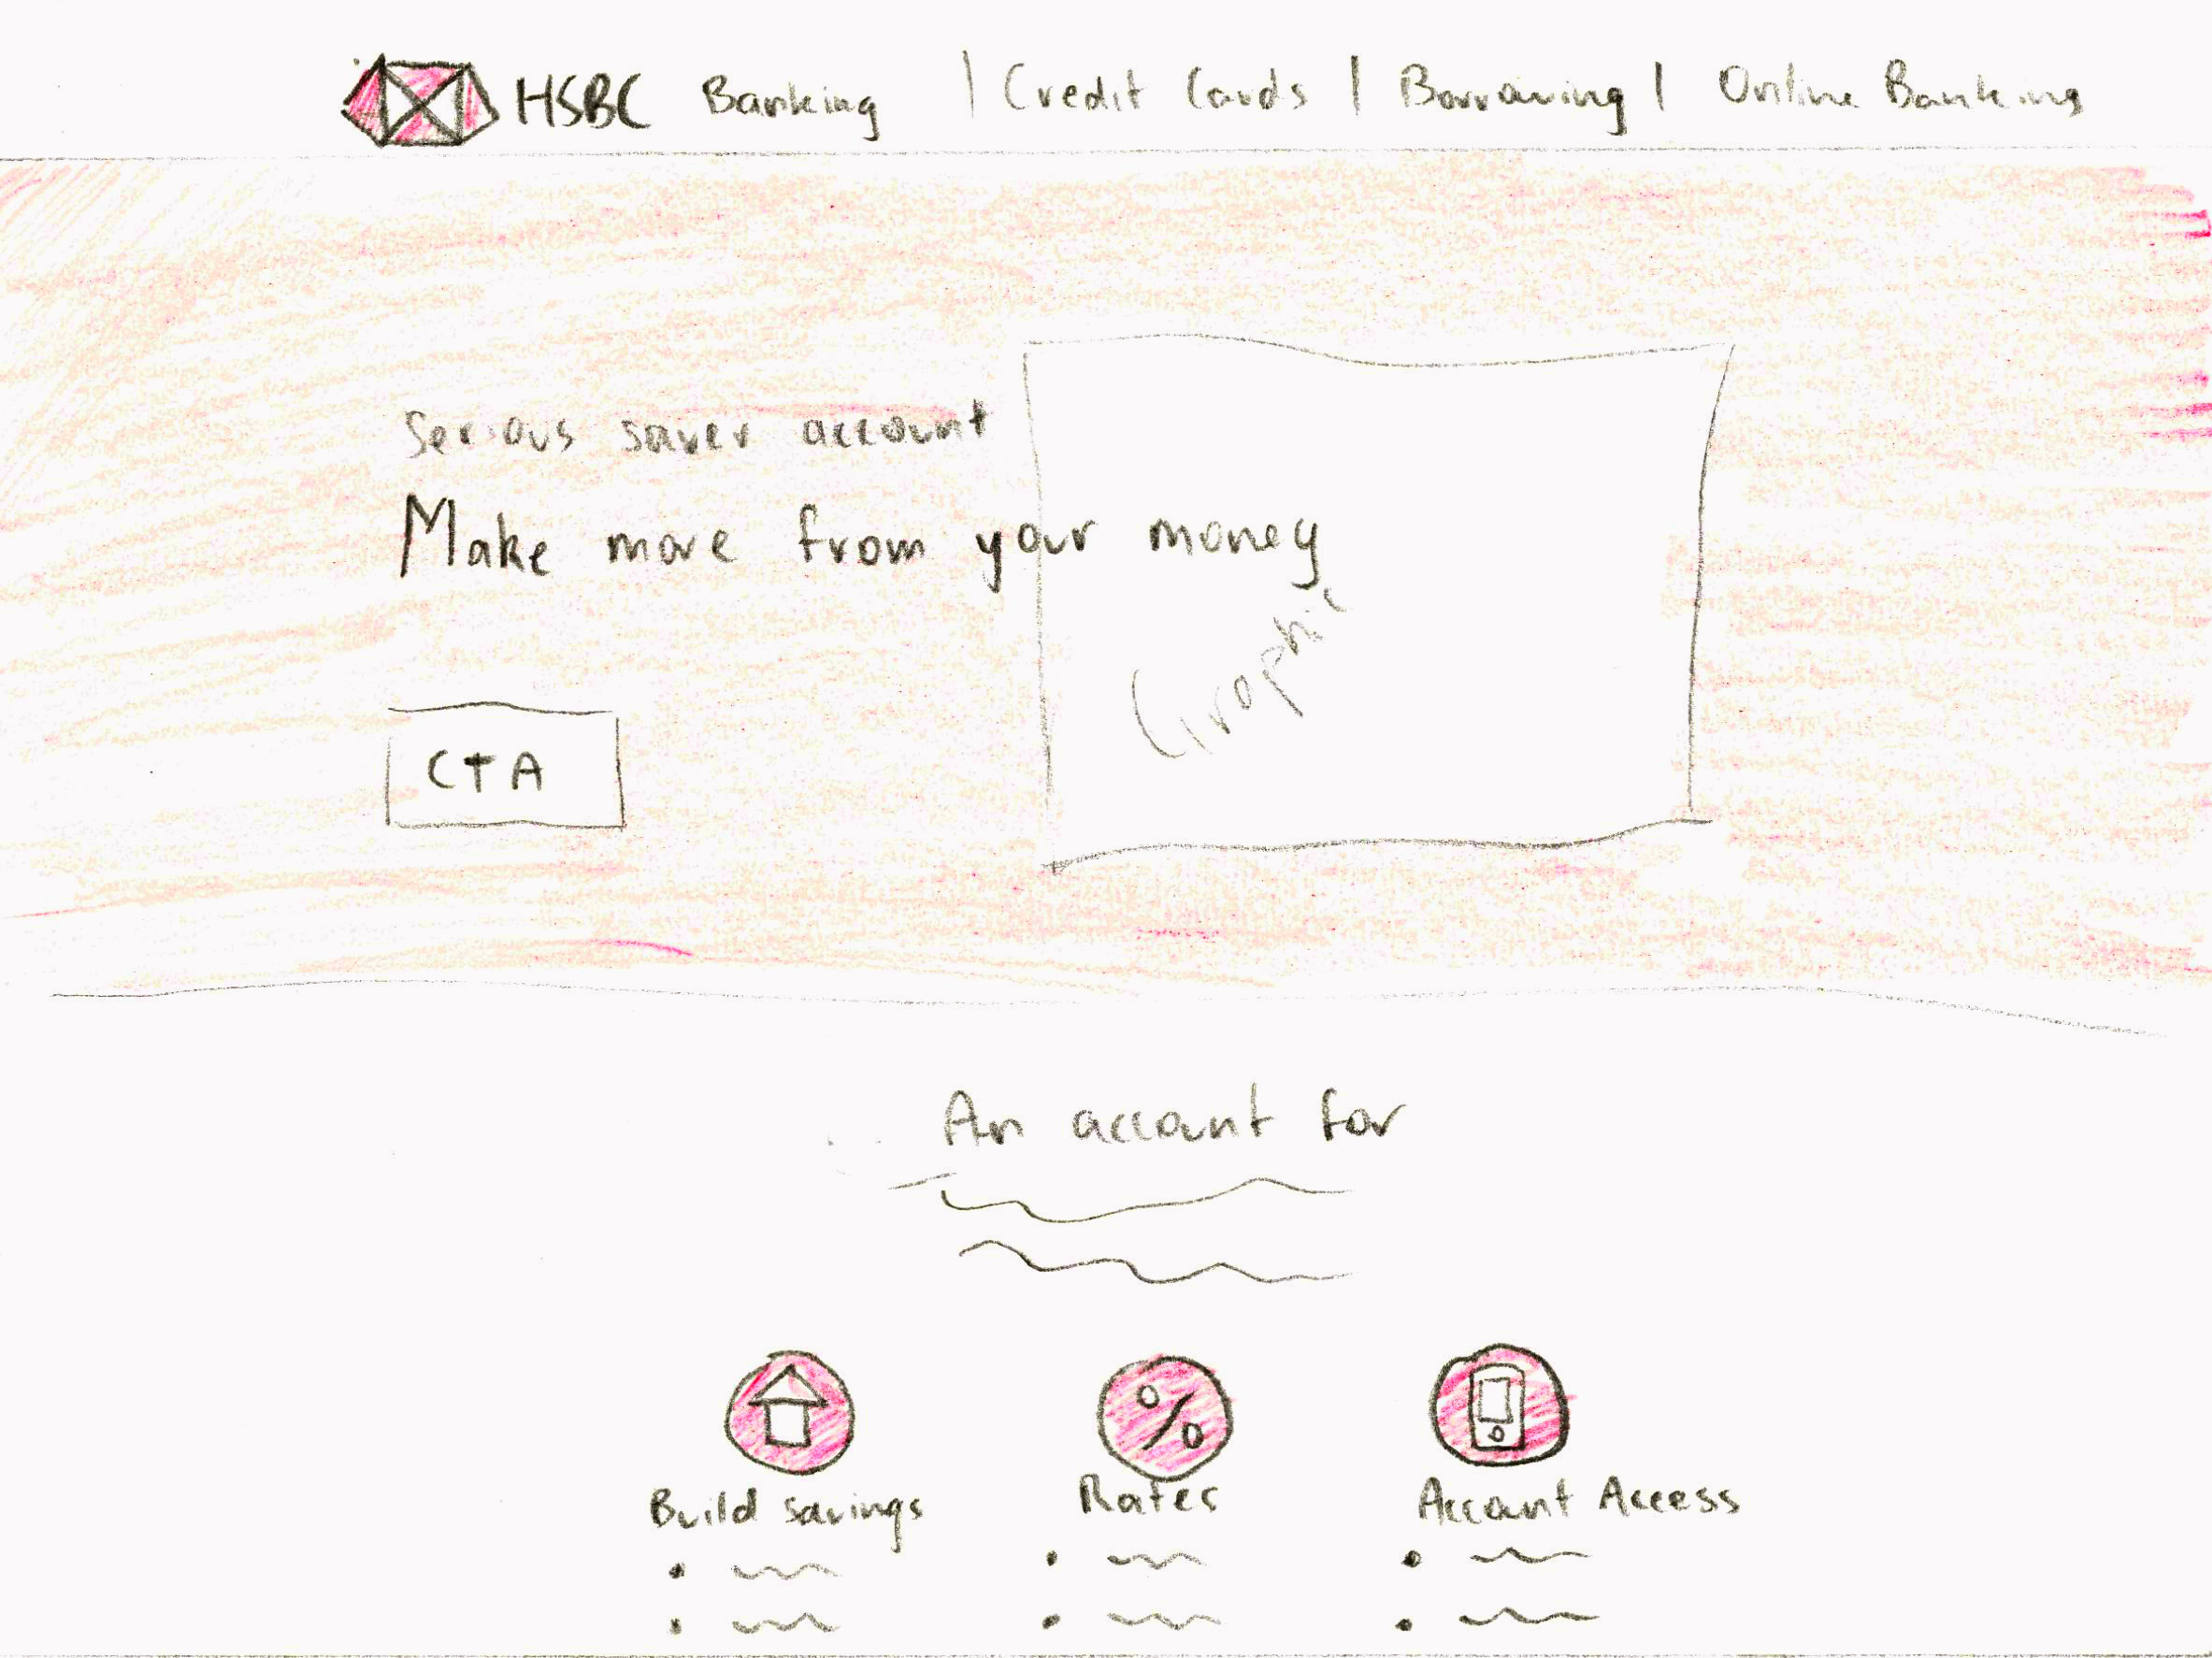 HSBC Banking | Credit Cards | Borrowing | Online Banking
Serious saver account
Make more from your money
Graphic
CTA
An account for
%
Build savings
Rates
Account Access